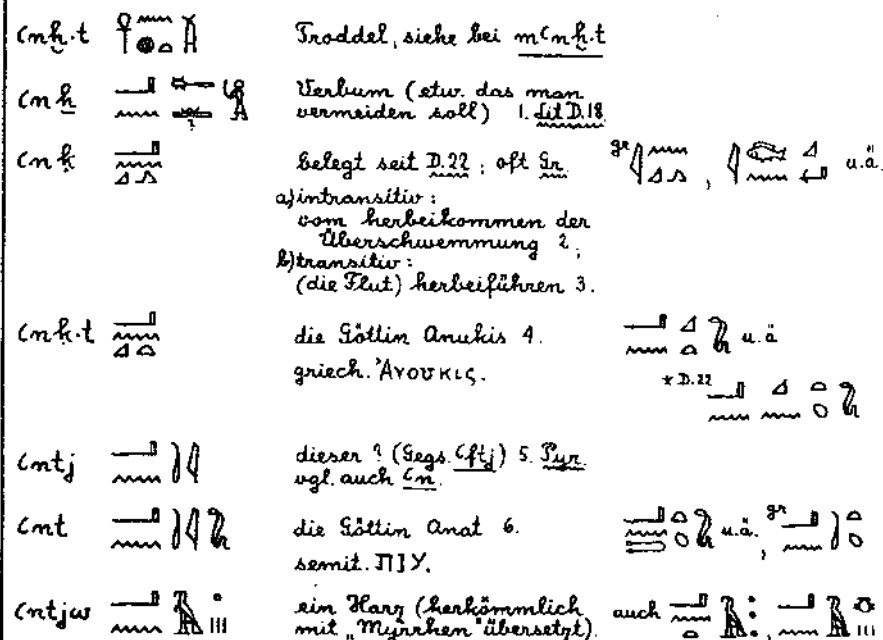 ꜥnḫ.t Troddel, siehe bei mꜥnḫ.t
ꜥnẖ Verbum (etw. das man
vermeiden soll) 1. Lit D.18
ꜥnḳ belegt seit D.22; oft Gr. gr , u.ä.
a) intransitiv:
vom herbeikommen der
Überschwemmung 2;
b) transitiv:
(die Flut) herbeiführen 3.
ꜥnḳ.t die Göttin Anukis 4. u.ä
griech. Ἀνουκις. * D.22
ꜥntj dieser? (Gegs. ꜥftj) 5. Pyr.
vgl. auch ꜥn.
ꜥnt die Göttin Anat 6. u.ä. gr ,
semit. ענת.
ꜥntjw ein Harz (herkömmlich auch ,
mit „Myrrhen“ übersetzt).